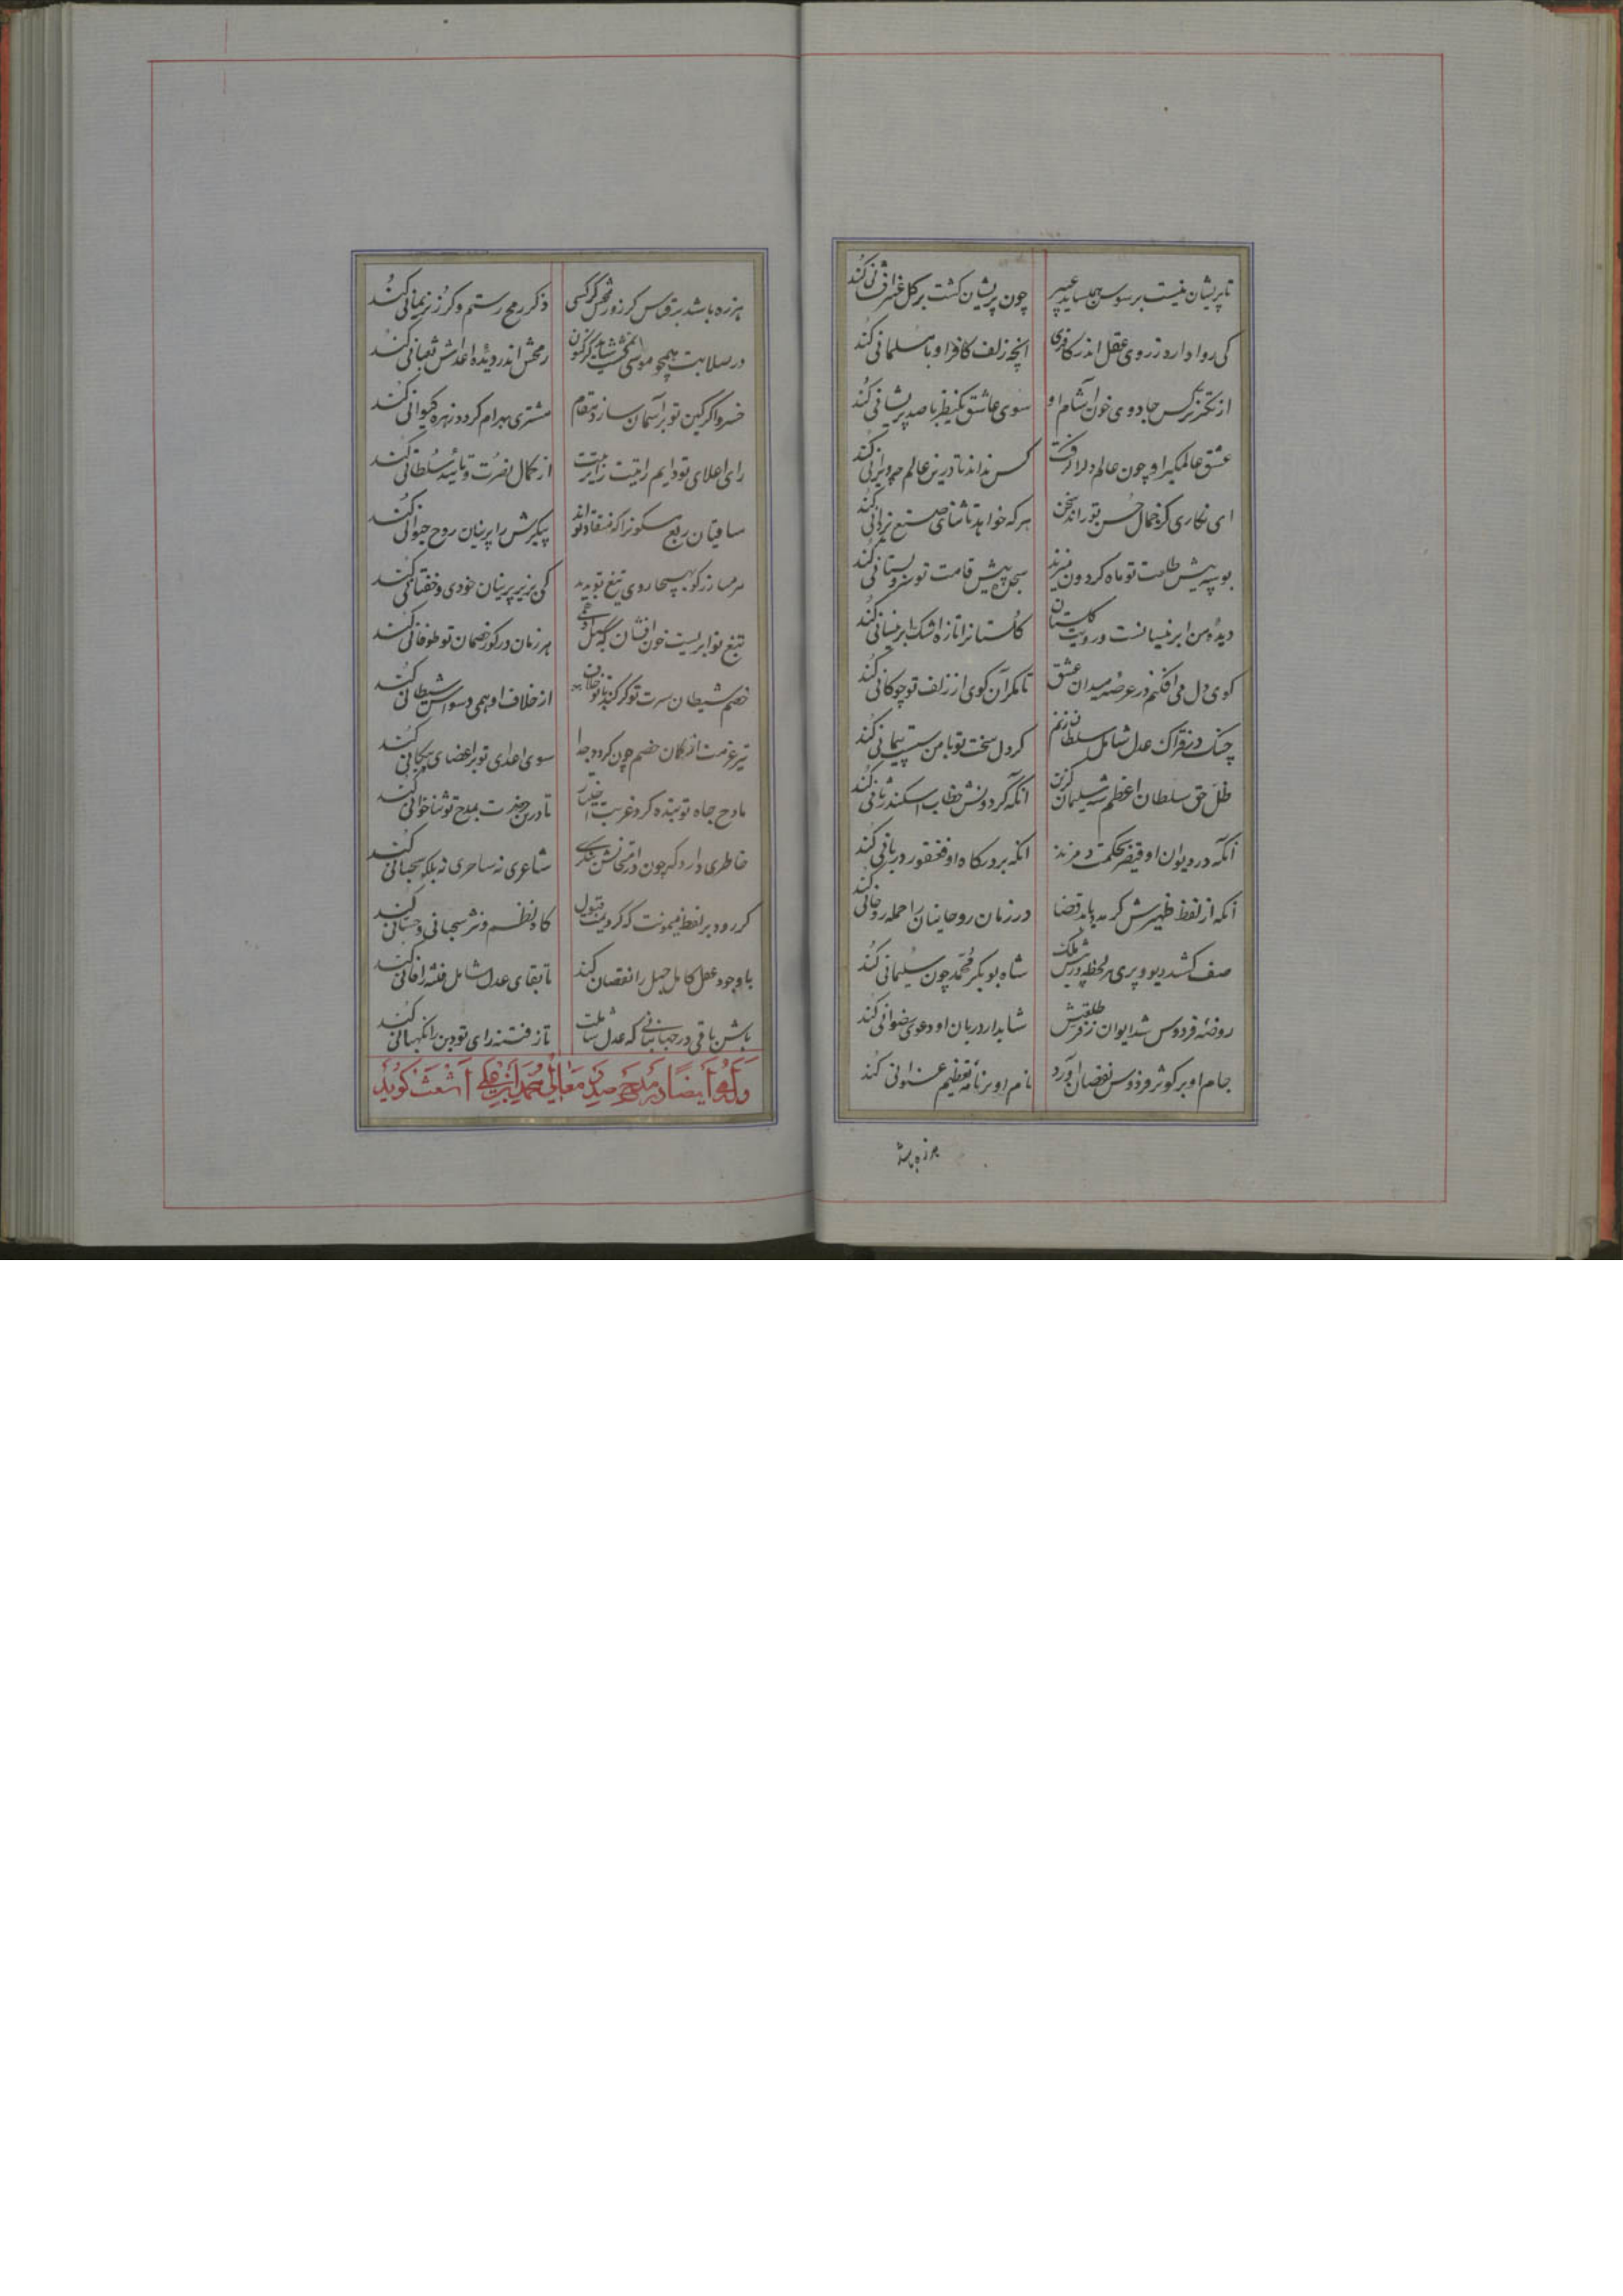 تا پریشان نیست بر سوسن همیساید عبیر
چون پریشان گشت بر گل عنبر افشانی کند
کی روا دارد ز روی عقل اندر کافری
انچه زلف کافر او با مسلمانی کند
از تکبر نرگس جادوی خون آشام او
سوی عاشق یکنظر با صد پریشانی کند
عشق عالمگیر او چون عالم دلرا گرفت
کس نداند تا درین عالم چه ویرانی کند
ای نگاری کز جمال حسن تو راند سخن
هر که خواهد تا ثنای صنع یزدانی کند
بوسه پیش طلعت تو ماه گردون میزند
سجده پیش قامت تو سرو بستانی کند
دیده من ابر نیسانست و رویت گلستان
گلستانرا تازه اشک ابر نیسانی کند
گوی دل می افکنم در عرصه میدان عشق
تا مگر آن گوی از زلف تو چوگانی کند
چنگ در فتراک عدل شامل سلطان زنم
گر دل سخت تو با من سست پیمانی کند
ظل حق سلطان اعظم شه سلیمان کزین
آنکه گردونش خطاب اسکندر ثانی کند
آنکه در دیوان او قیصر بحکمت دم زند
انکه بر درگاه او فغفور دربانی کند
آنکه از لفظ ظهیرش گر مدد یابد قضا
در زمان روحانیان را جمله روحانی کند
صف کشد دیو و پری هر لحظه در پیش ملک
شاه بوبکر محمد چون سلیمانی کند
روضه فردوس شد ایوان ز فر طلعتش
شاید ار دربان او دعوی رضوانی کند
جام او بر کوثر فردوس نقصان آورد
نام او بر نامه تعظیم عنوانی کند
هرزه باشد
هرزه باشد بر قیاس گرز و رمحش گر کسی
ذکر رمح رستم و گرز نریمانی کند
در صلابت همچو موسی
رمحش اندر دیده اعداش ثعبانی کند
خسروا گر کین تو بر آسمان سازد مقام
مشتری بهرام گردد زهره کیوانی کند
رای اعلای تو دایم رایت
از کمال نصرت و تایید سلطانی کند
ساقیان ربع مسکونرا که منقاد تواند
پیکرش را پرنیان روح حیوانی کند
روی تیغ تو
کی بزیر پرنیان خودی و خفتانی کند
تیغ تو ابریست خون افشان که
هر زمان در کور خصمان تو طوفانی کند
خصم شیطان سیرت تو گر کند با تو خلاف
از خلاف او همی وسواس شیطانی کند
تیر عزمت از کمان خصم چون گردد جدا
سوی اعدای تو بر اعضای پیکانی کند
مادح جاه تو بنده کرد غربت اختیار
تا درین حضرت بمدح تو ثناخوانی کند
خاطری دارد که چون در امتحانش بنگری
شاعری نه ساحری نه بلکه سحبانی کند
گر رود بر لفظ میمونت که کردیمت قبول
کاو بنظم و نثر سحبانی و حسانی کند
با وجود عقل کامل جهل را نقصان کند
تا بقای عدل شامل فتنه را فانی کند
باش باقی در جهانبانی که عدل شاملت
تا ز فتنه رای تو دین را نگهبانی کند
وله ایضا در مدح صدر معالی محمد ابن علی اشعث گوید